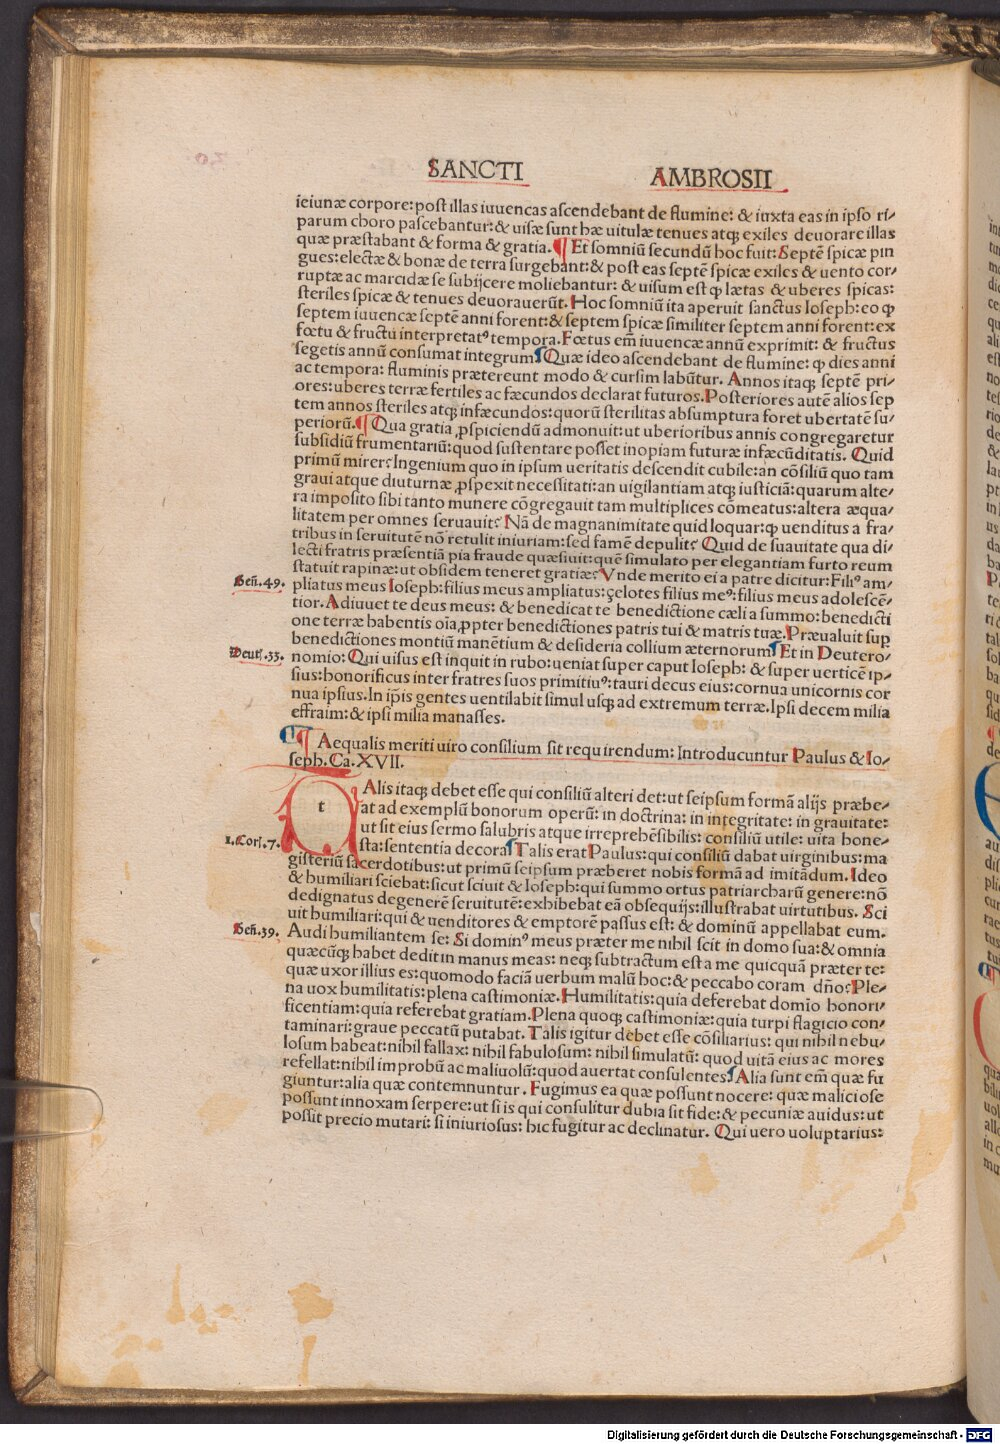 SANCTI AMBROSII
ieiunæ corpore: post illas iuuencas ascendebant de flumine: & iuxta eas in ipso ri/
parum choro pascebantur: & uisæ sunt hæ uitulæ tenues atq; exiles deuorare illas
quæ præstabant & forma & gratia. ¶ Et somniū secundū hoc fuit: Septē spicæ pin
gues: electæ & bonæ de terra surgebant: & post eas septē spicæ exiles & uento cor/
ruptæ ac marcidæ se subijcere moliebantur: & uisum est ꝙ lætas & uberes spicas:
steriles spicæ & tenues deuorauerūt. Hoc somniū ita aperuit sanctus Ioseph: eo ꝙ
septem iuuencæ septē anni forent: & septem spicæ similiter septem anni forent: ex
fœtu & fructu interpretatꝰ tempora. Fœtus em̄ iuuencæ annū exprimit: & fructus
segetis annū consumat integrum ¶ Quæ ideo ascendebant de flumine: ꝙ dies anni
ac tempora: fluminis prætereunt modo & cursim labūtur. Annos itaq; septē pri/
ores: uberes terræ fertiles ac fæcundos declarat futuros. Posteriores autē alios sep
tem annos steriles atq; infæcundos: quorū sterilitas absumptura foret ubertatē su/
periorū. ¶ Qua gratia ꝓspiciendū admonuit: ut uberioribus annis congregaretur
subsidiū frumentariū: quod sustentare posset inopiam futuræ infæcūditatis. Quid
primū mirer? Ingenium quo in ipsum ueritatis descendit cubile: an cōsiliū quo tam
graui atque diuturnæ ꝓspexit necessitati: an uigilantiam atq; iusticiā: quarum alte/
ra imposito sibi tanto munere cōgregauit tam multiplices cōmeatus: altera æqua/
litatem per omnes seruauit? Nā de magnanimitate quid loquar: ꝙ uenditus a fra/
tribus in seruitutē nō retulit iniuriam: sed famē depulit? Quid de suauitate qua di/
lecti fratris præsentiā pia fraude quæsiuit: quē simulato per elegantiam furto reum
statuit rapinæ: ut obsidem teneret gratiæ? Vnde merito ei a patre dicitur: Filiꝰ am/
Geñ. 49. pliatus meus Ioseph: filius meus ampliatus: çelotes filius meꝰ: filius meus adolescē/
tior. Adiuuet te deus meus: & benedicat te benedictione cæli a summo: benedicti
one terræ habentis oīa ꝓpter benedictiones patris tui & matris tuæ. Præualuit suꝑ
benedictiones montiū manētium & desideria collium æternorum ¶ Et in Deutero/
Deut̄. 33. nomio: Qui uisus est inquit in rubo: ueniat super caput Ioseph: & super uerticē ip/
sius: honorificus inter fratres suos primitiuꝰ: tauri decus eius: cornua unicornis cor
nua ipsius. In ip̄is gentes uentilabit simul usq; ad extremum terræ. Ipsi decem milia
effraim: & ipsi milia manasses.
¶ Aequalis meriti uiro consilium sit requirendum: Introducuntur Paulus & Io/
seph. Ca. XVII.
t Alis itaq; debet esse qui consiliū alteri det: ut seipsum formā alijs præbe/
at ad exemplū bonorum operū: in doctrina: in integritate: in grauitate:
ut sit eius sermo salubris atque irreprehēsibilis: consiliū utile: uita hone/
1. Cor̄. 7. sta: sententia decora ¶ Talis erat Paulus: qui consiliū dabat uirginibus: ma
gisteriū sacerdotibus: ut primū seipsum præberet nobis formā ad imitādum. Ideo
& humiliari sciebat: sicut sciuit & Ioseph: qui summo ortus patriarcharū genere: nō
dedignatus degenerē seruitutē: exhibebat eā obsequijs: illustrabat uirtutibus. Sci
uit humiliari: qui & uenditores & emptorē passus est: & dominū appellabat eum.
Geñ. 39. Audi humiliantem se: Si dominꝰ meus præter me nihil scit in domo sua: & omnia
quæcūq; habet dedit in manus meas: neq; subtractum est a me quicquā præter te:
quæ uxor illius es: quomodo faciā uerbum malū hoc: & peccabo coram dn̄o? Ple/
na uox humilitatis: plena castimoniæ. Humilitatis: quia deferebat domīo honori/
ficentiam: quia referebat gratiam. Plena quoq; castimoniæ: quia turpi flagicio con/
taminari: graue peccatū putabat. Talis igitur debet esse cōsiliarius: qui nihil nebu/
losum habeat: nihil fallax: nihil fabulosum: nihil simulatū: quod uitā eius ac mores
refellat: nihil improbū ac maliuolū: quod auertat consulentes ¶ Alia sunt em̄ quæ fu
giuntur: alia quæ contemnuntur. Fugimus ea quæ possunt nocere: quæ maliciose
possunt innoxam serpere: ut si is qui consulitur dubia sit fide: & pecuniæ auidus: ut
possit precio mutari: si iniuriosus: hic fugitur ac declinatur. Qui uero uoluptarius:
Digitalisierung gefördert durch die Deutsche Forschungsgemeinschaft - DFG